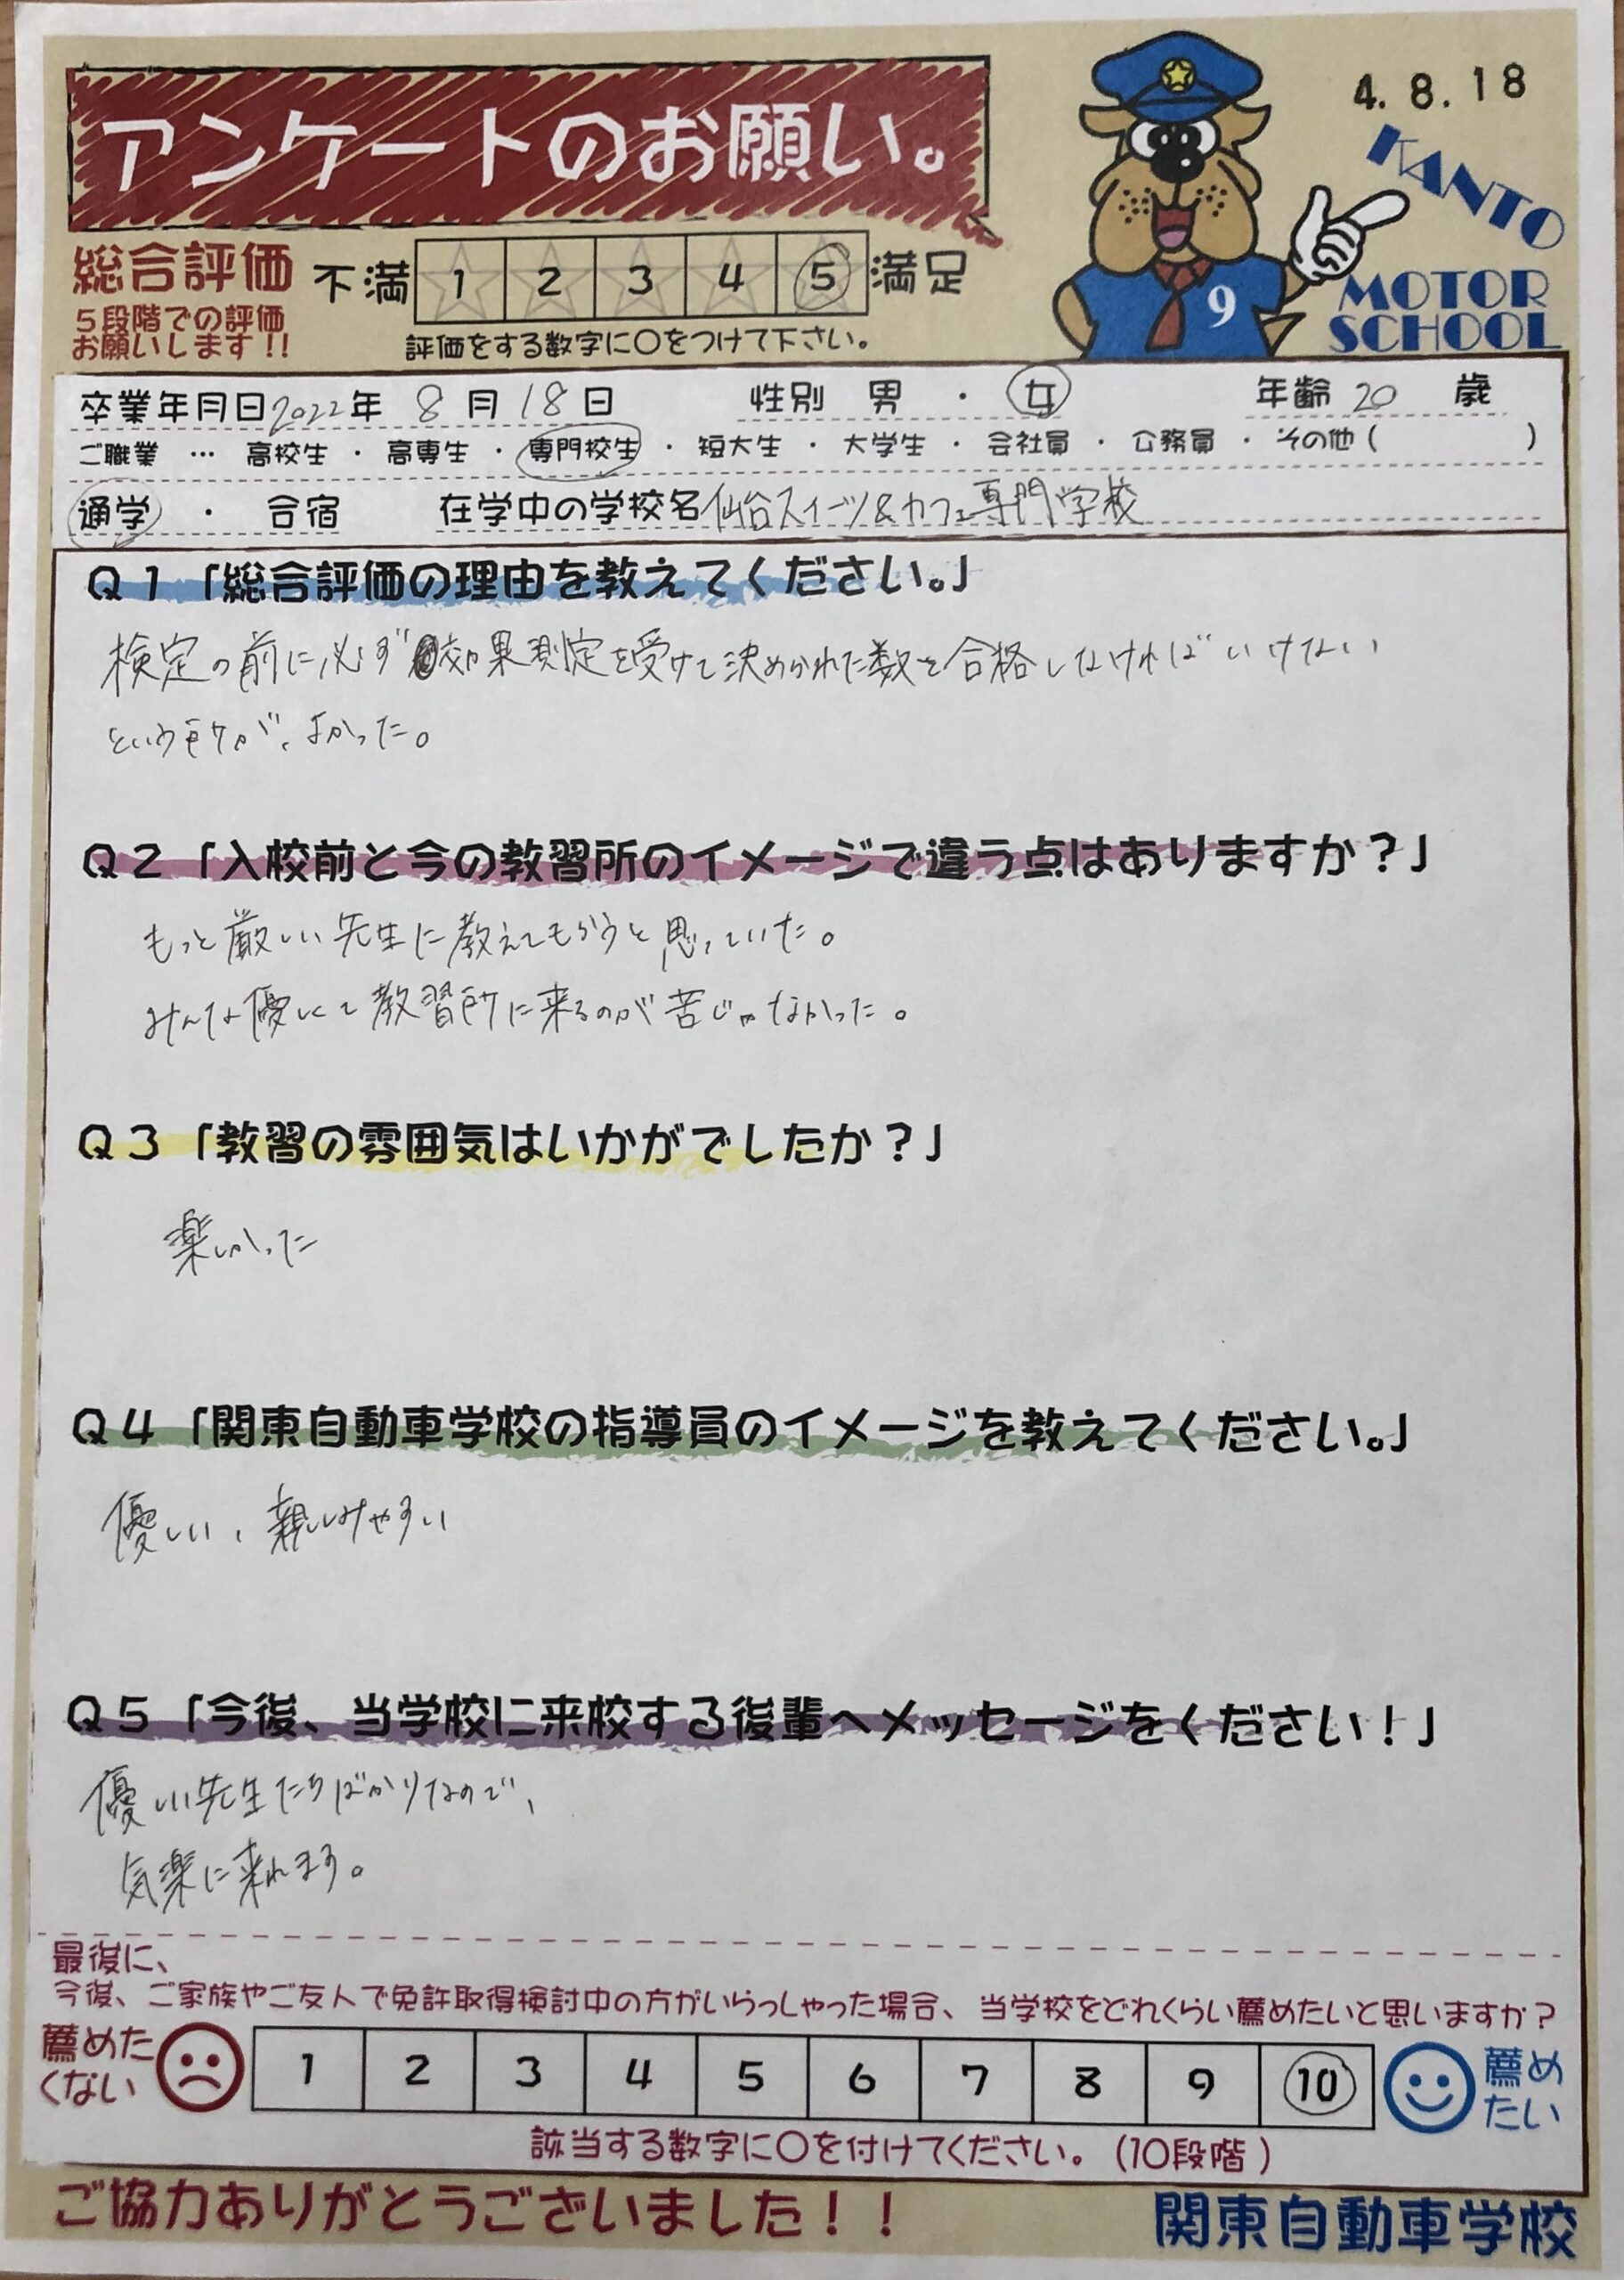 アンケートのお願い。
4. 8. 18
KANTO
MOTOR
SCHOOL
9
総合評価
5段階での評価
お願いします!!
不満 1 2 3 4 5 満足
評価をする数字に○をつけて下さい。
卒業年月日2022年 8月18日 性別 男 ・ 女 年齢 20 歳
ご職業 … 高校生 ・ 高専生 ・ 専門校生 ・ 短大生 ・ 大学生 ・ 会社員 ・ 公務員 ・ その他 ( )
通学 ・ 合宿 在学中の学校名 仙台スイーツ&カフェ専門学校
Q1「総合評価の理由を教えてください。」
検定の前に必ず効果測定を受けて決められた数を合格しなければいけない
という所が、よかった。
Q2「入校前と今の教習所のイメージで違う点はありますか?」
もっと厳しい先生に教えてもらうと思っていた。
みんな優しくて教習所に来るのが苦じゃなかった。
Q3「教習の雰囲気はいかがでしたか?」
楽しかった
Q4「関東自動車学校の指導員のイメージを教えてください。」
優しい、親しみやすい
Q5「今後、当学校に来校する後輩へメッセージをください!」
優しい先生たちばかりなので、
気楽に来れます。
最後に、
今後、ご家族やご友人で免許取得検討中の方がいらっしゃった場合、当学校をどれくらい薦めたいと思いますか?
薦めた
くない
1 2 3 4 5 6 7 8 9 10
薦め
たい
該当する数字に○を付けてください。(10段階)
ご協力ありがとうございました!!
関東自動車学校